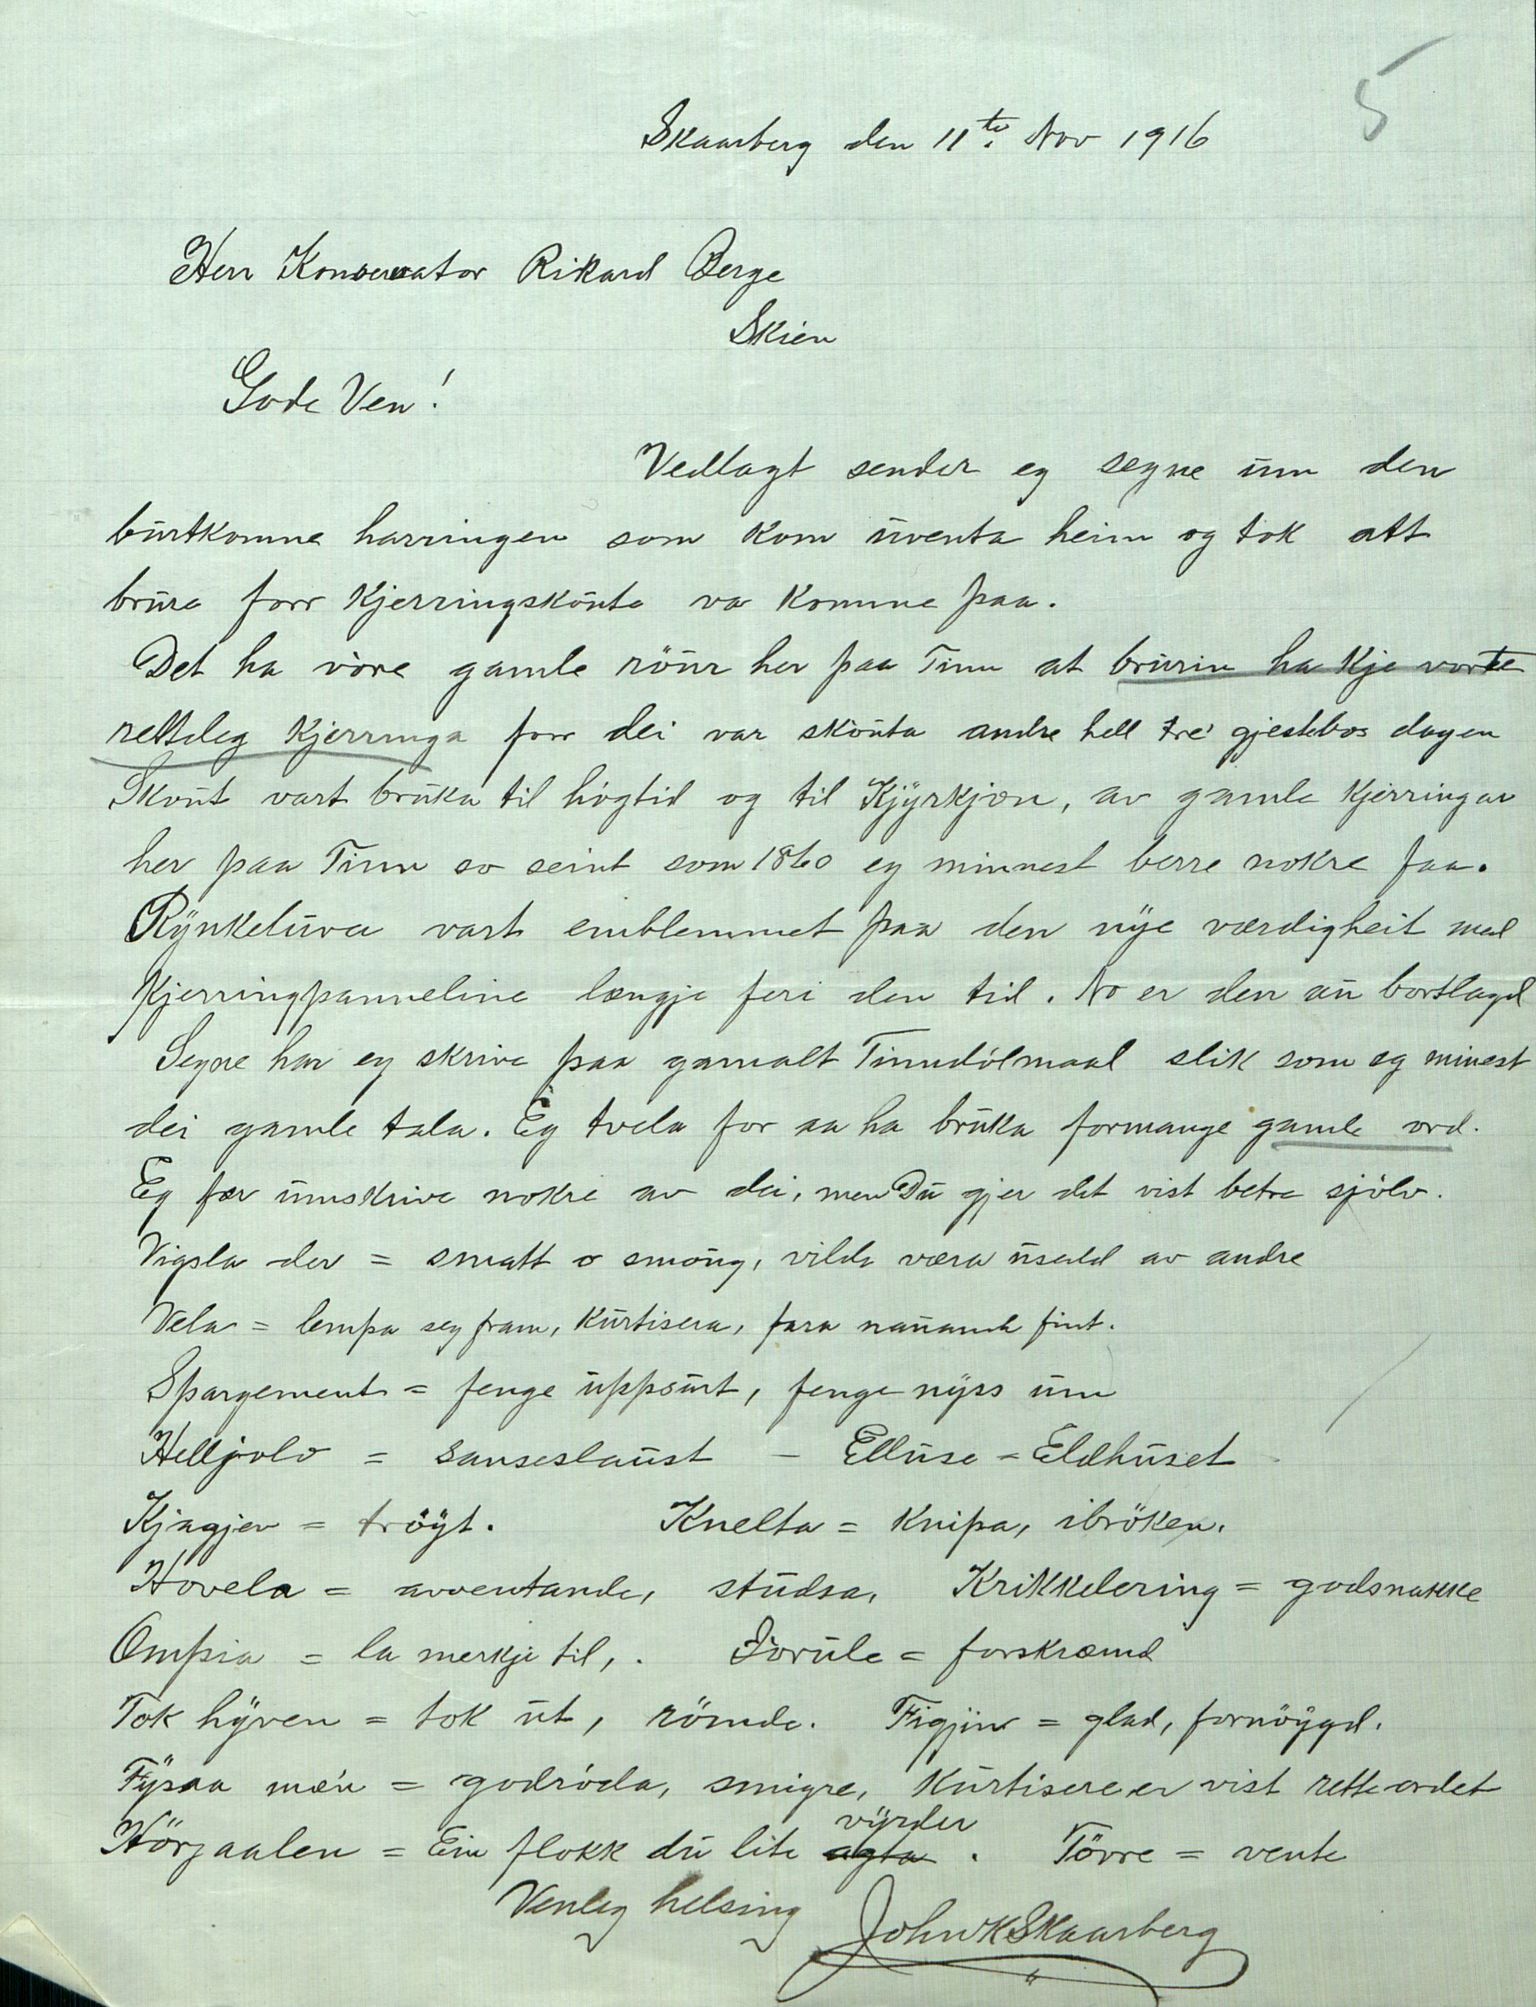 5
Skaarberg den 11te Nov 1916
Herr Konservator Rikard Berge
Skien
Gode Ven!
Vedlagt sender eg segne um den
burtkomne harringen som kom uventa heim og tok att
brure forr kjerringskönta va komme paa.
Det ha vore gamle röur her paa Tinn at brurin ha kje vorte
retteleg kjerringa forr dei var skönta andre hell tre' gjestebos dagen
Skönt vart bruka til høgtid og til Kjÿrkjon, av gamle kjerringar
her paa Tinn so seint som 1860 eg minnest berre nokre faa.
Rÿnkeluva vart emblemmet paa den nÿe værdigheit med
kjerringpanneline længje feri den tid. No er den au bortlagd
Segne har eg skrive paa gamalt Tinndölmaal slik som eg minest
dei gamle tala. Eg tvela for aa ha bruka formange gamle ord.
Eg fær umskrive nokre av dei, men Du gjer det vist betre sjölv.
Vigsla der = smatt o smöug, vilde væra usedd av andre
Vela = lempa seg fram, kurtisera, fara nauande fint.
Spargement = fenge uppsurt, fenge nÿss um
Helljolo = sanseslaust – Elluse = Eldhuset
Kjagjen = tröÿt. Knelta = knipa, ibröken.
Hovela = avventande, studsa, Krikkelering = godsnakke
Ompia = la merkje til, . Jorule = forskræmd
Tok hÿven = tok ut, römde. Figjin = glad, fornöÿgd.
Fÿsaa mæ'n = godröda, smigre, kurtisere er vist rette ordet
Hörjaalen = Ein flokk du lite agta vÿrder . Tövre = vente
Venleg helsing John K Skaarberg